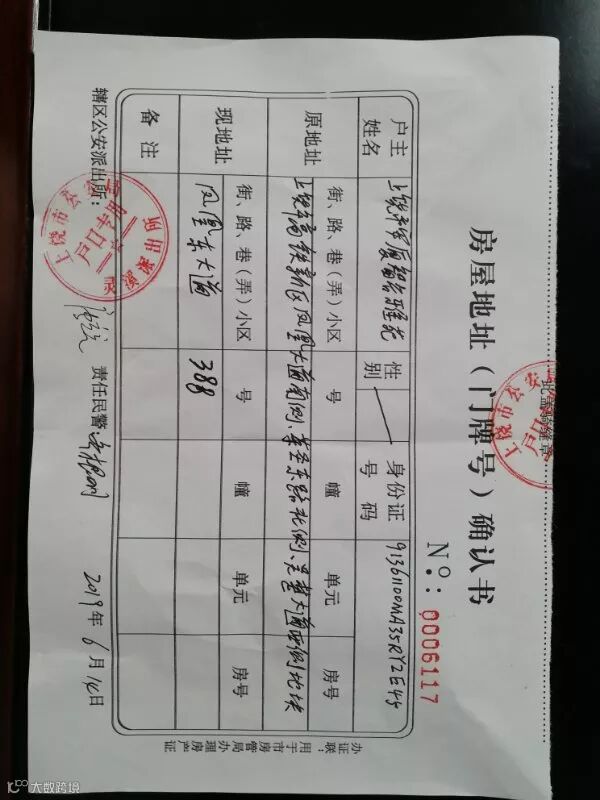 房屋地址（门牌号）确认书
此盖骑缝章
上饶市公安
户口专用
№： 0006117
户主姓名
性别
身份证号码
91361100MA35RYZE45
原地址
街、路、巷（弄）小区 号 幢 单元 房号
上饶市高铁新区凤凰大道南侧、
东路北侧、吴楚大道西侧地块
现地址
街、路、巷（弄）小区 号 幢 单元 房号
凤凰东大道 388
备注
辖区公安派出所：
上饶市公安
户口专用
派出所
责任民警：
2019年6月14日
办证联：用于市房管局办理房产证
大数跨境